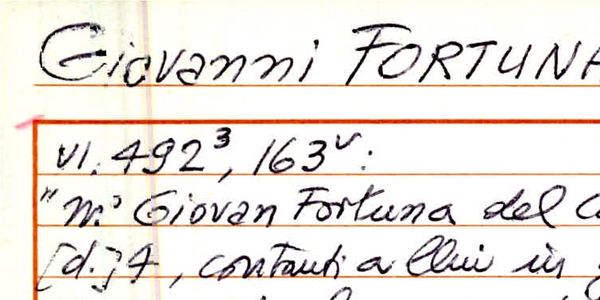 Giovanni FORTUNA
VI. 492³, 163ᵛ:
"m.° Giovan Fortuna del
[d.] 4, contanti a llui in